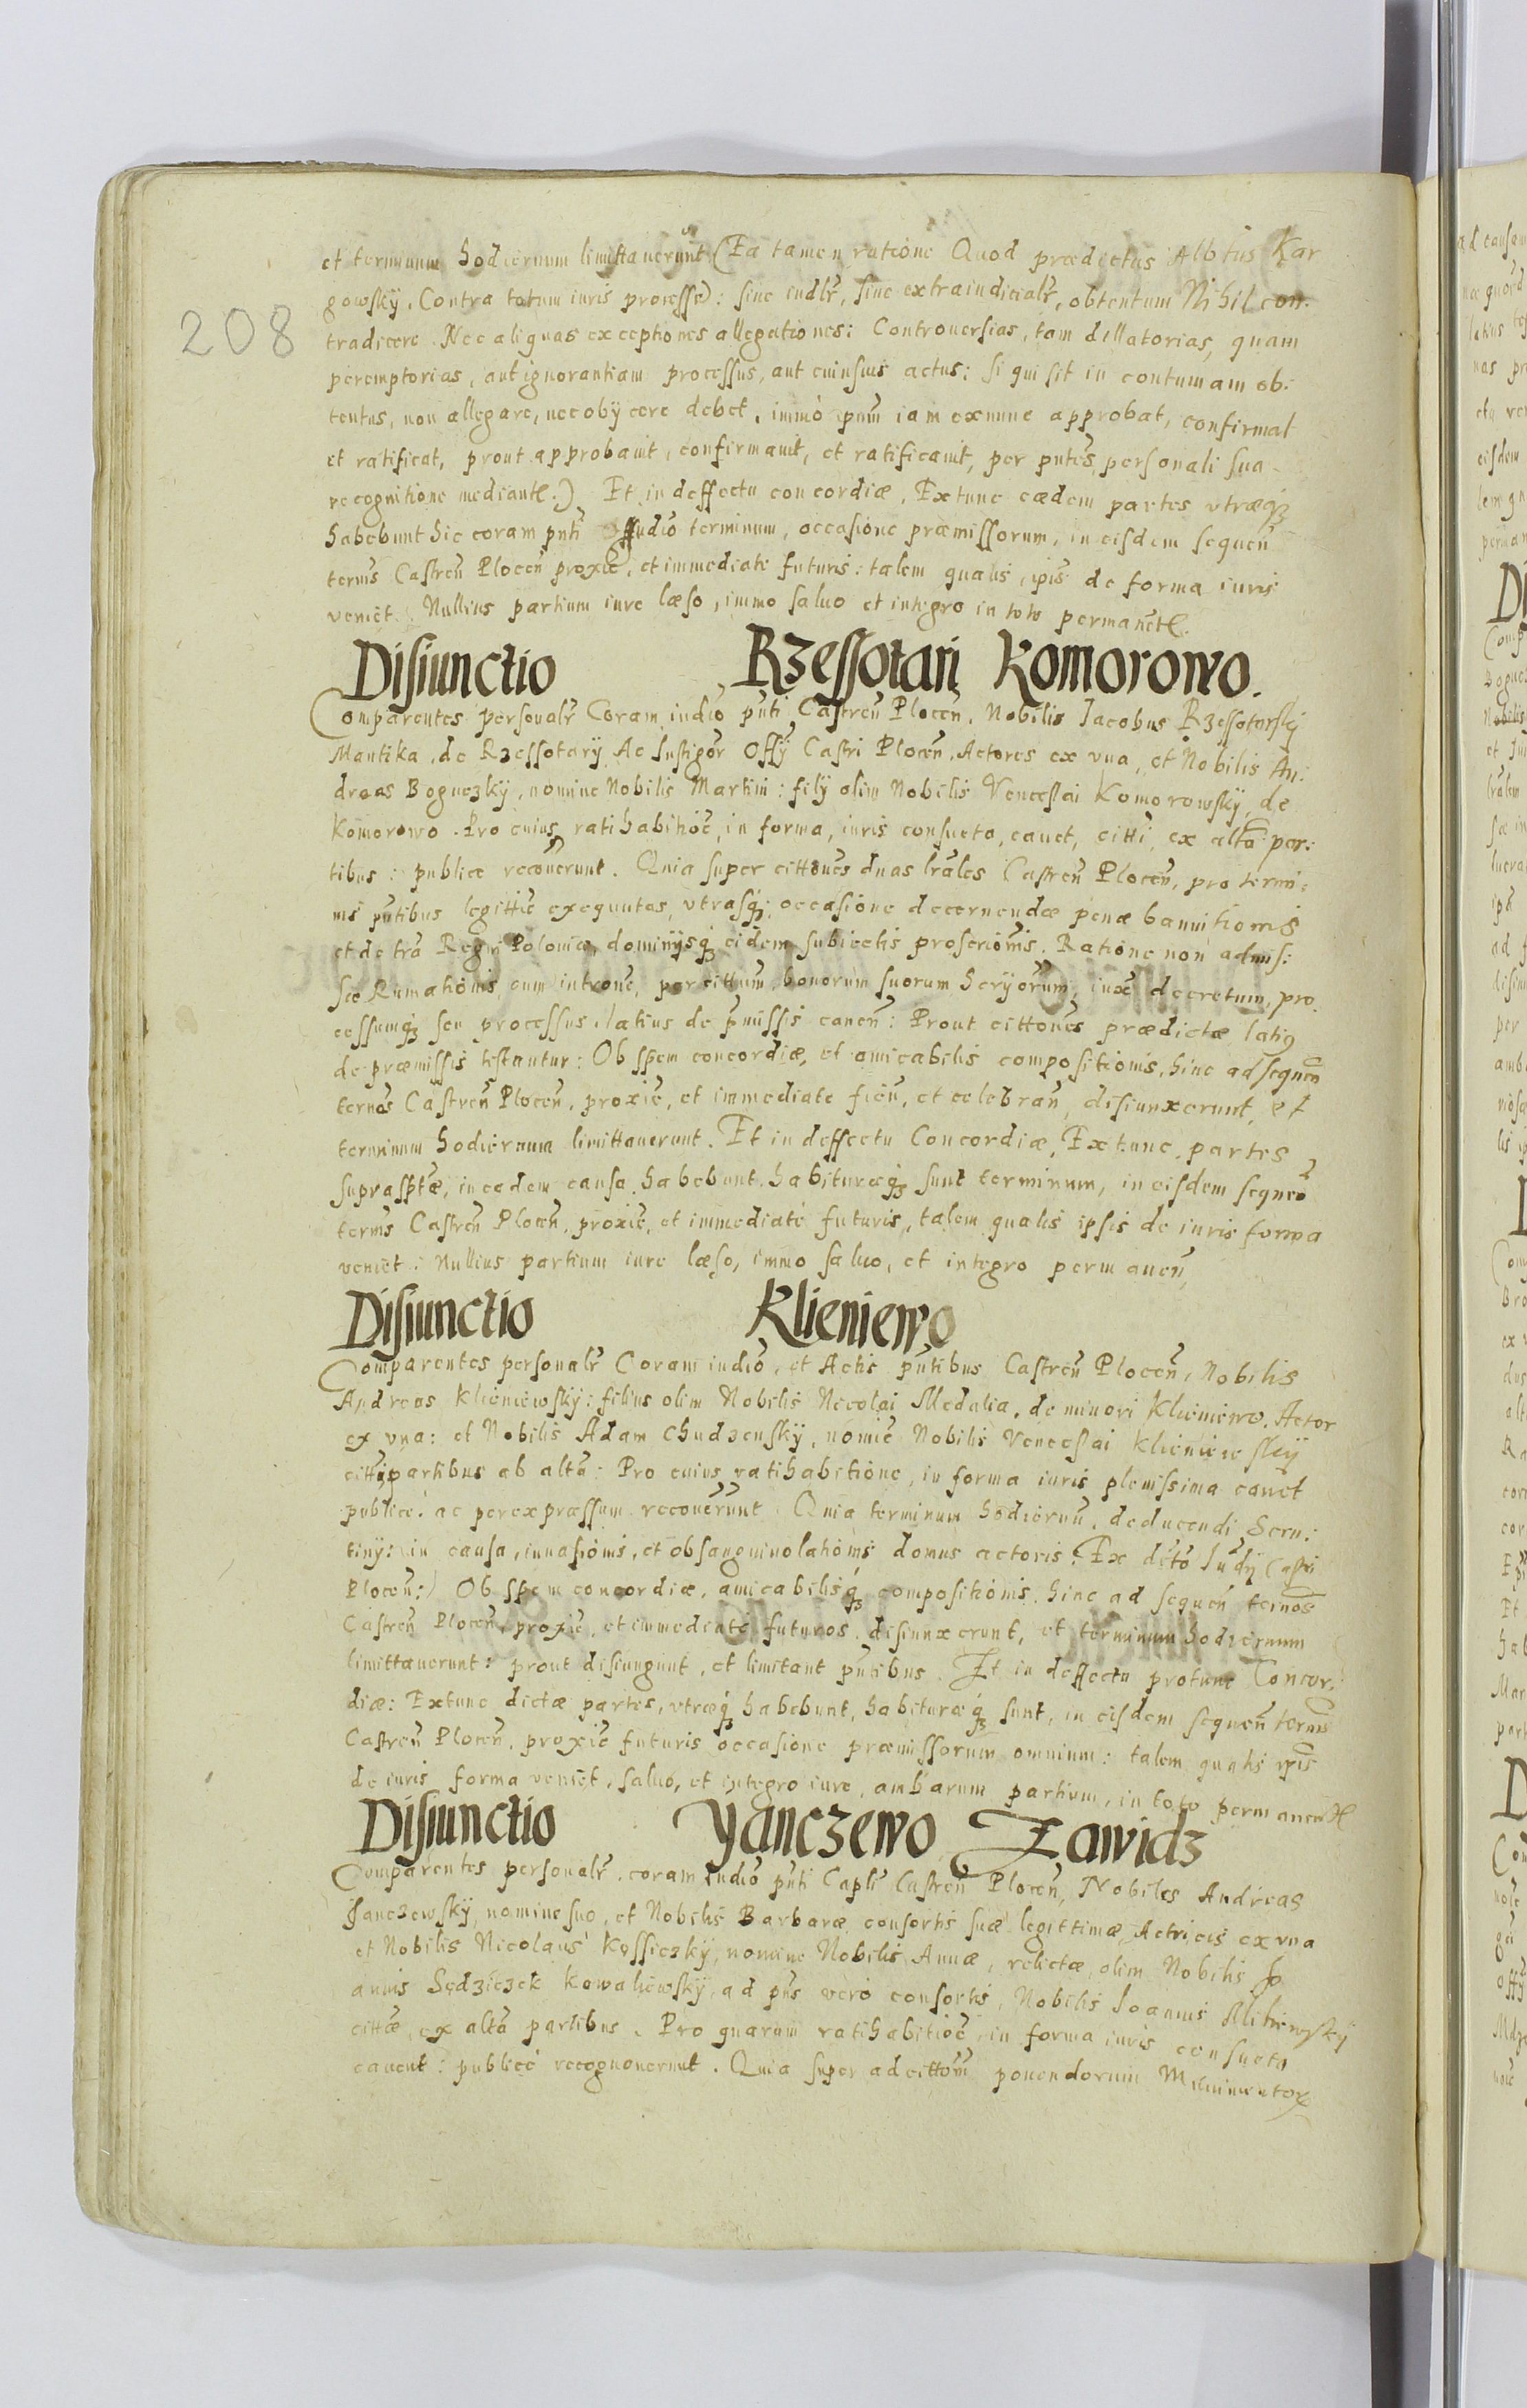 et terminum hodiernum limittauerunt (Ea tamen ratione Quod prædictus Albtus Kar
gowskÿ, Contra totum iuris processu): siue iudlr, siue extraiudicialr, obtentum Nihil con-
tradicere. Nec aliquas exceptiones allegationes: Controuersias, tam dillatorias, quam
208
peremptorias, aut ignorantiam processus, aut cuiusuis actus: si qui sit in contumam ob:
tentus, non allegare, nec obÿcere debet, immò ipum iam exnunc approbat, confirmat
et ratificat, prout approbauit, confirmauit, et ratificauit, per pntes personali sua
recognitione mediante.) Et in deffectu concordiæ, Extunc eædem partes vtræq3
habebunt hic coram pnti iudio terminum, occasione præmissorum, in eisdem sequen
termis Castren Plocen proxie, et immediate futuris: talem qualis ipis de forma iuris
veniet. Nullius partium iure læso, immo saluo et integro in toto permanete.
Disiunctio Rzessotari Komorowo.
Comparentes personalr Coram iudio pnti Castren Plocen, Nobilis Jacobus Rzessotarskÿ
Mantika, de Rzessotarÿ Ac Instigor Offÿ Castri Plocen, Actores ex vna, et Nobilis An:
dreas Boguczkÿ, nomine Nobilis Martini: filÿ olim Nobilis Venceslai Komorowskÿ, de
Komorowo. Pro cuius ratihabitioe, in forma, iuris consueta, cauet, citti, ex alta par:
tibus: publice recouerunt. Quia super cittoues duas lrales Castren Plocen, pro termi:
nis pntibus legittie exequutas, vtrasq3 occasione decernendæ penæ bannitionis
et de tra Regni Poloniæ, dominÿsq3 eidem subiectis proscriomis. Ratione non admis:
sæ Rumationis, cum introne, per cittum, bonorum suorum heryorum, iuxe decretum, pro
cessumq3 seu processus, latius de pmissis canen: Prout cittones prædictæ latiq
de præmissis testantur: Ob spem concordiæ, et amicabilis compositionis, hinc ad sequen
ternos Castren Plocen, proxie, et immediate ficn, et celebran, disiunxerunt, et
terminum hodiernum limittauerunt. Et in deffectu Concordiæ, Extunc, partes
suprasptæ, in eadem causa habebunt, habituræq3 sunt terminum, in eisdem sequen
termis Castren Plocen, proxie, et immediate futuris, talem qualis ipsis de iuris forma
veniet: Nullius partium iure læso, immo saluo, et integro permanen,
Disiunctio Klieniewo
Comparentes personalr Coram iudio, et Actis pntibus Castren Plocen, Nobilis
Andreas Klieniewskÿ: filius olim Nobilis Nicolai Medalia, de minori Klieniewo, Actor
ex vna: et Nobilis Adam Chudzenskÿ, nomie Nobilis Venceslai Klieniewskÿ
citti, partibus ab alta: Pro cuius ratihabitione, in forma iuris plenissima cauet
publice: ac per expræssum recouerunt Quia terminum hodiernu, deducendi Scru:
tinÿ: in causa, inuasionis, et obsanguinolationis domus actoris, Ex deto Iudÿ Castri
Plocen:) Ob spem concordiæ, amicabilisq3 compositionis, hinc ad sequen ternos
Castren Plocen, proxie, et immediate futuros, disiunxerunt, et terminum hodiernum
limittauerunt: prout disiungunt, et limitant pntibus. Et in deffectu protunc Concor
diæ: Extunc dictæ partes, vtræq3 habebunt, habituræq3 sunt, in eisdem sequen termis
Castren Plocen, proxie futuris occasione præmissorum omnium: talem qualis ipis
de iuris forma veniet, saluo, et integro iure, ambarum partium, in toto permanente
Disiunctio Yanczewo Zawidz
Comparentes personalr, coram iudio pnti Capli Castren Plocen, Nobiles Andreas
Janczewskÿ, nomine suo, et Nobilis Barbaræ consortis suæ legittimæ, Actricis ex vna
et Nobilis Nicolaus Kossiczkÿ, nomine Nobilis Annæ, relictæ, olim Nobilis Jo
annis Sędziczek Kowaliewskÿ, ad pns vero consortis, Nobilis Joannis Miliewskÿ
cittæ, ex alta partibus. Pro quarum ratihabitioe, in forma iuris consueta
cauent: publicè recognouerunt. Quia super ad cittom ponendorum Munimentor